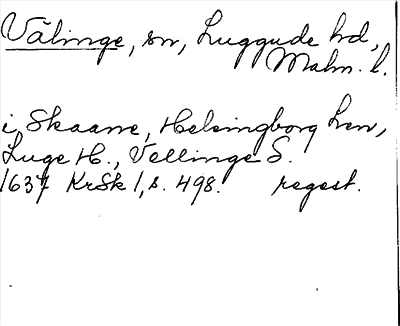 Välinge, sn, Luggude hd,
Malm. l.
i Skaane, Helsingborg Len,
Luge H., Vellinge S.
1637 KrSk 1, s. 498. regest.